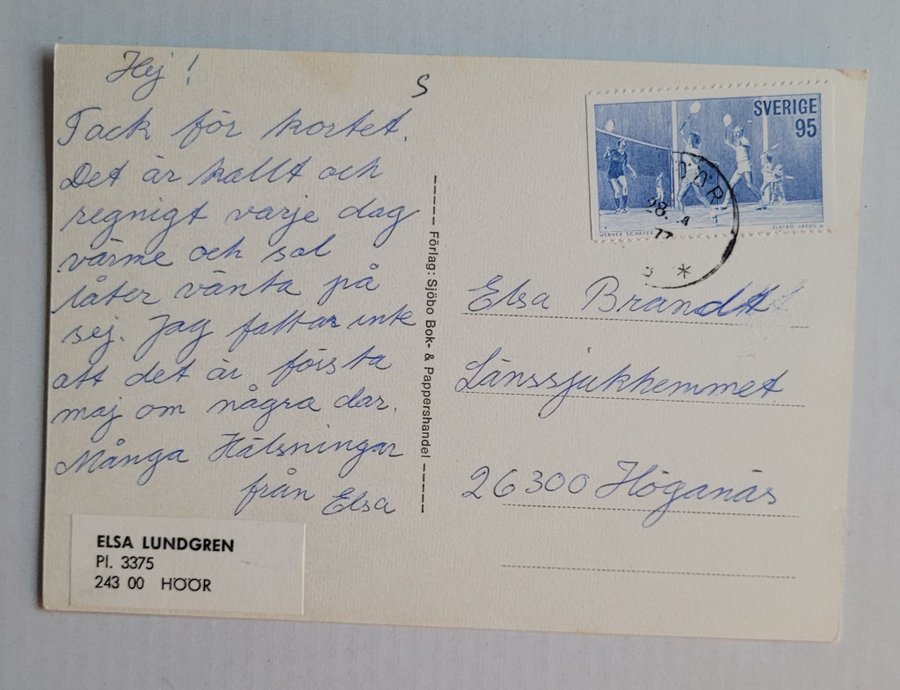 Hej!
Tack för kortet.
Det är kallt och
regnigt varje dag
värme och sol
låter vänta på
sej. Jag fattar inte
att det är första
maj om några dar.
Många Hälsningar
från Elsa
ELSA LUNDGREN
Pl. 3375
243 00 HÖÖR
S
Förlag: Sjöbo Bok- & Pappershandel
SVERIGE
95
HÖÖR
28.-4
77
*
Elsa Brandt
Länssjukhemmet
26300 Höganäs